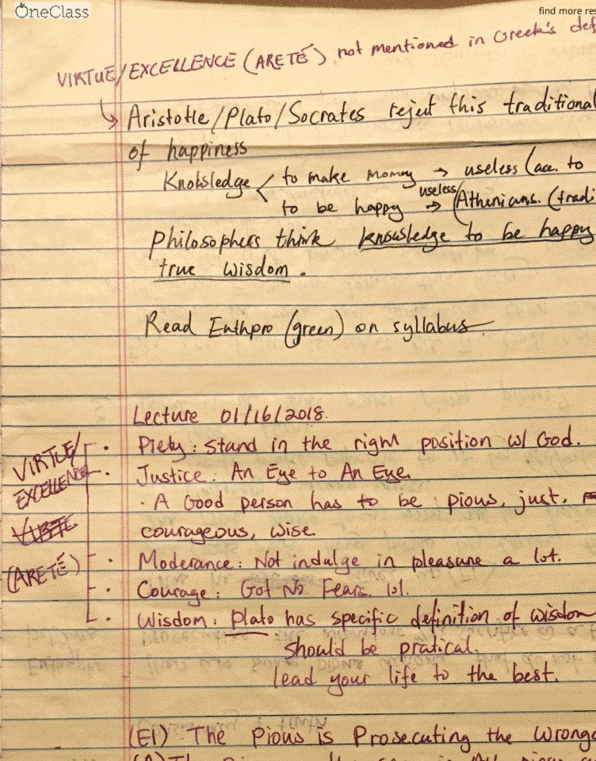 OneClass
find more res
VIRTUE/EXCELLENCE (ARETÉ) not mentioned in Greek's def
Aristotle/Plato/Socrates reject this traditional
of happiness
Knowledge < to make money → useless (acc. to
to be happy → useless (Athenians. (tradi
Philosophers think knowledge to be happy
true wisdom.
Read Euthpro (green) on syllabus.
Lecture 01/16/2018.
VIRTUE/
EXCELLENCE
(ARETÉ)
· Piety: Stand in the right position w/ God.
· Justice: An Eye to An Eye.
· A Good person has to be pious, just,
courageous, wise.
· Moderance: Not indulge in pleasure a lot.
· Courage: Got No Fears lol.
· Wisdom: Plato has specific definition of wisdom
should be pratical.
lead your life to the best.
(E1) The Pious is Prosecuting the Wrong